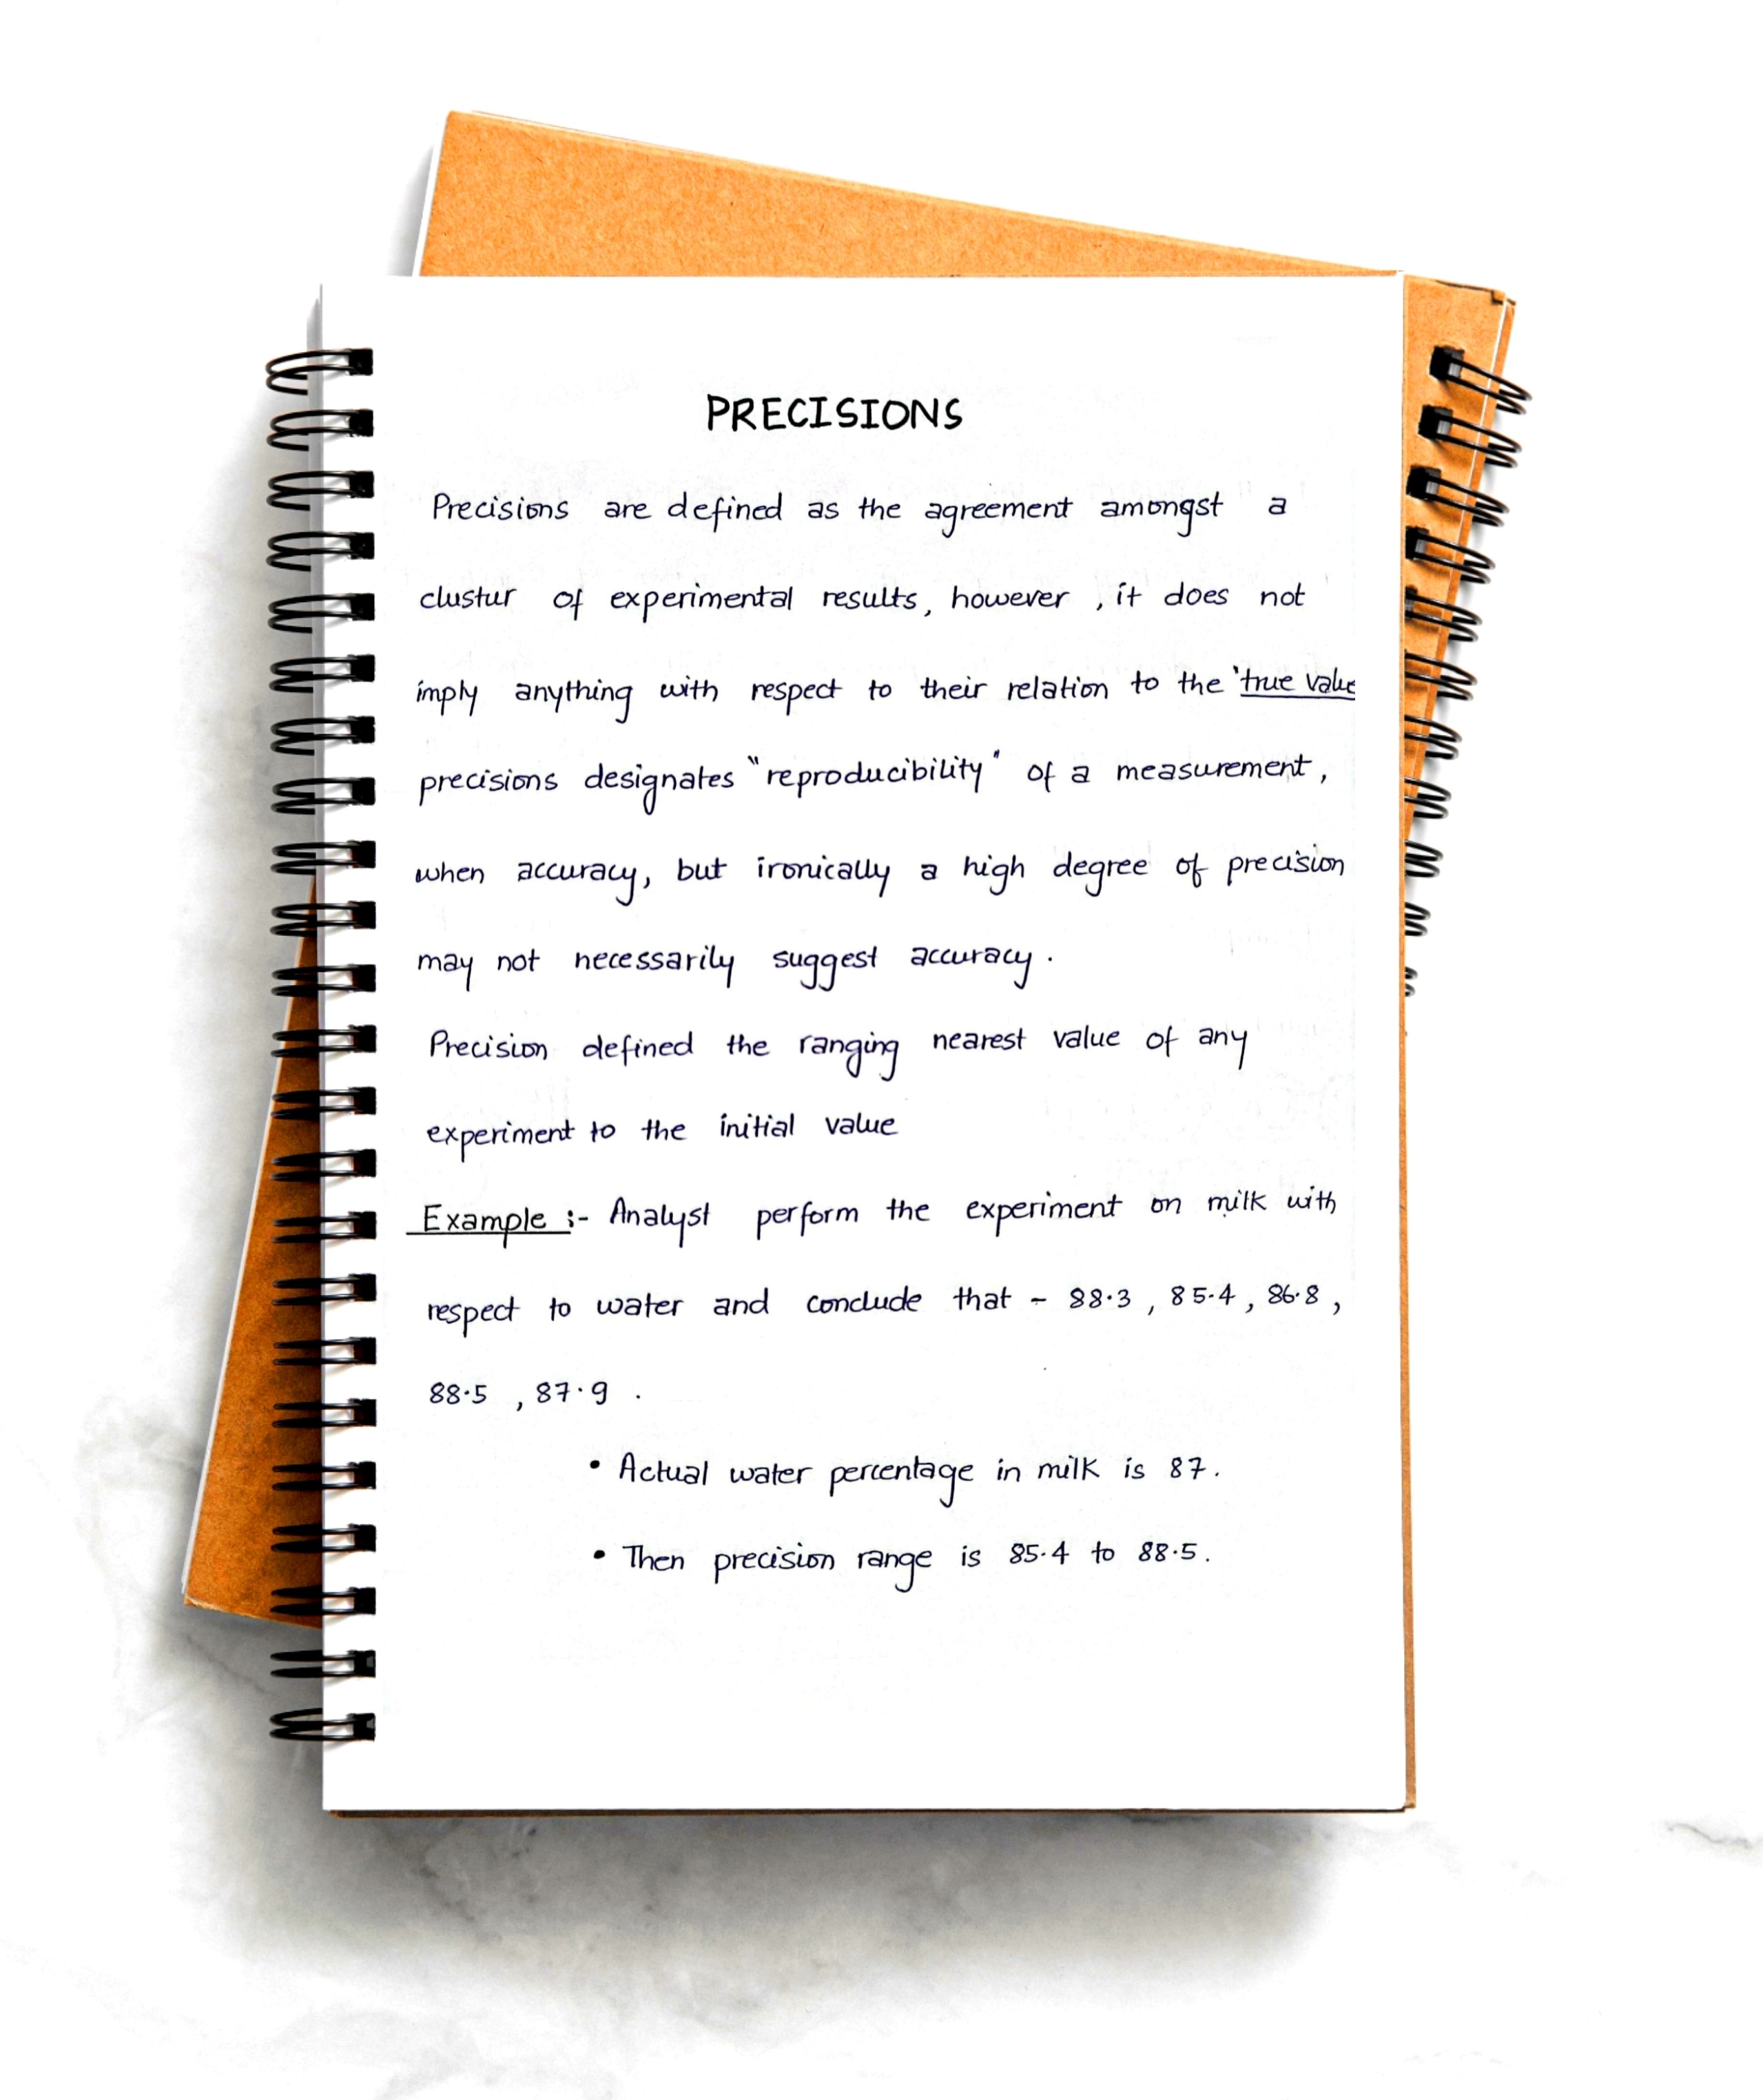 PRECISIONS
Precisions are defined as the agreement amongst a
clustur of experimental results, however , it does not
imply anything with respect to their relation to the 'true value
precisions designates "reproducibility" of a measurement,
when accuracy, but ironically a high degree of precision
may not necessarily suggest accuracy.
Precision defined the ranging nearest value of any
experiment to the initial value
Example :- Analyst perform the experiment on milk with
respect to water and conclude that - 88.3 , 85.4 , 86.8 ,
88.5 , 87.9 .
• Actual water percentage in milk is 87.
• Then precision range is 85.4 to 88.5.